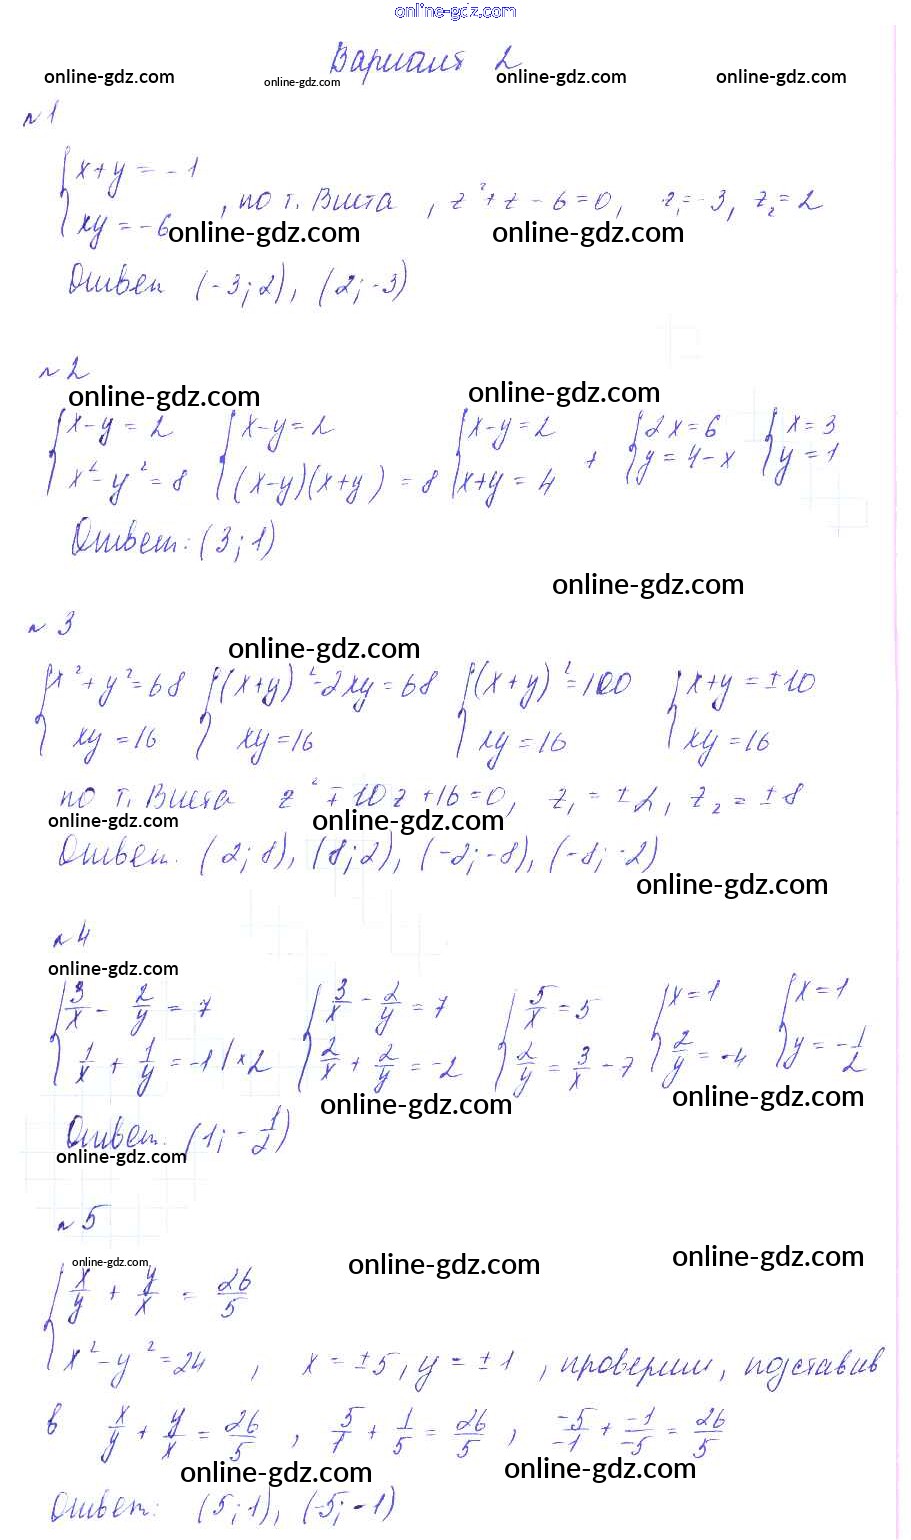 online-gdz.com
Вариант 2
online-gdz.com online-gdz.com online-gdz.com online-gdz.com
№1
{ x+y = -1
xy = -6 , по т. Виета , z²+z-6=0, z₁=-3, z₂=2
online-gdz.com online-gdz.com
Ответ (-3; 2), (2; -3)
№2
online-gdz.com online-gdz.com
{ x-y = 2 { x-y = 2 { x-y = 2 { 2x = 6 { x = 3
x²-y² = 8 (x-y)(x+y) = 8 x+y = 4 + y = 4-x y = 1
Ответ: (3; 1)
online-gdz.com
№3
online-gdz.com
{ x²+y²=68 { (x+y)²-2xy=68 { (x+y)²=100 { x+y = ±10
xy = 16 xy=16 xy = 16 xy = 16
по т. Виета z² ∓ 10z + 16 = 0, z₁ = ±2, z₂ = ±8
online-gdz.com online-gdz.com
Ответ. (2; 8), (8; 2), (-2; -8), (-8; -2)
online-gdz.com
№4
online-gdz.com
{ 3/x - 2/y = 7 { 3/x - 2/y = 7 { 5/x = 5 { x=1 { x = 1
1/x + 1/y = -1 | ×2 2/x + 2/y = -2 2/y = 3/x - 7 2/y = -4 y = -1/2
online-gdz.com online-gdz.com
Ответ. (1; -1/2)
online-gdz.com
№5
online-gdz.com online-gdz.com online-gdz.com
{ x/y + y/x = 26/5
x²-y²=24 , x = ±5, y = ±1 , проверим, подставив
в x/y + y/x = 26/5 , 5/1 + 1/5 = 26/5 , -5/-1 + -1/-5 = 26/5
online-gdz.com online-gdz.com
Ответ: (5; 1), (-5; -1)